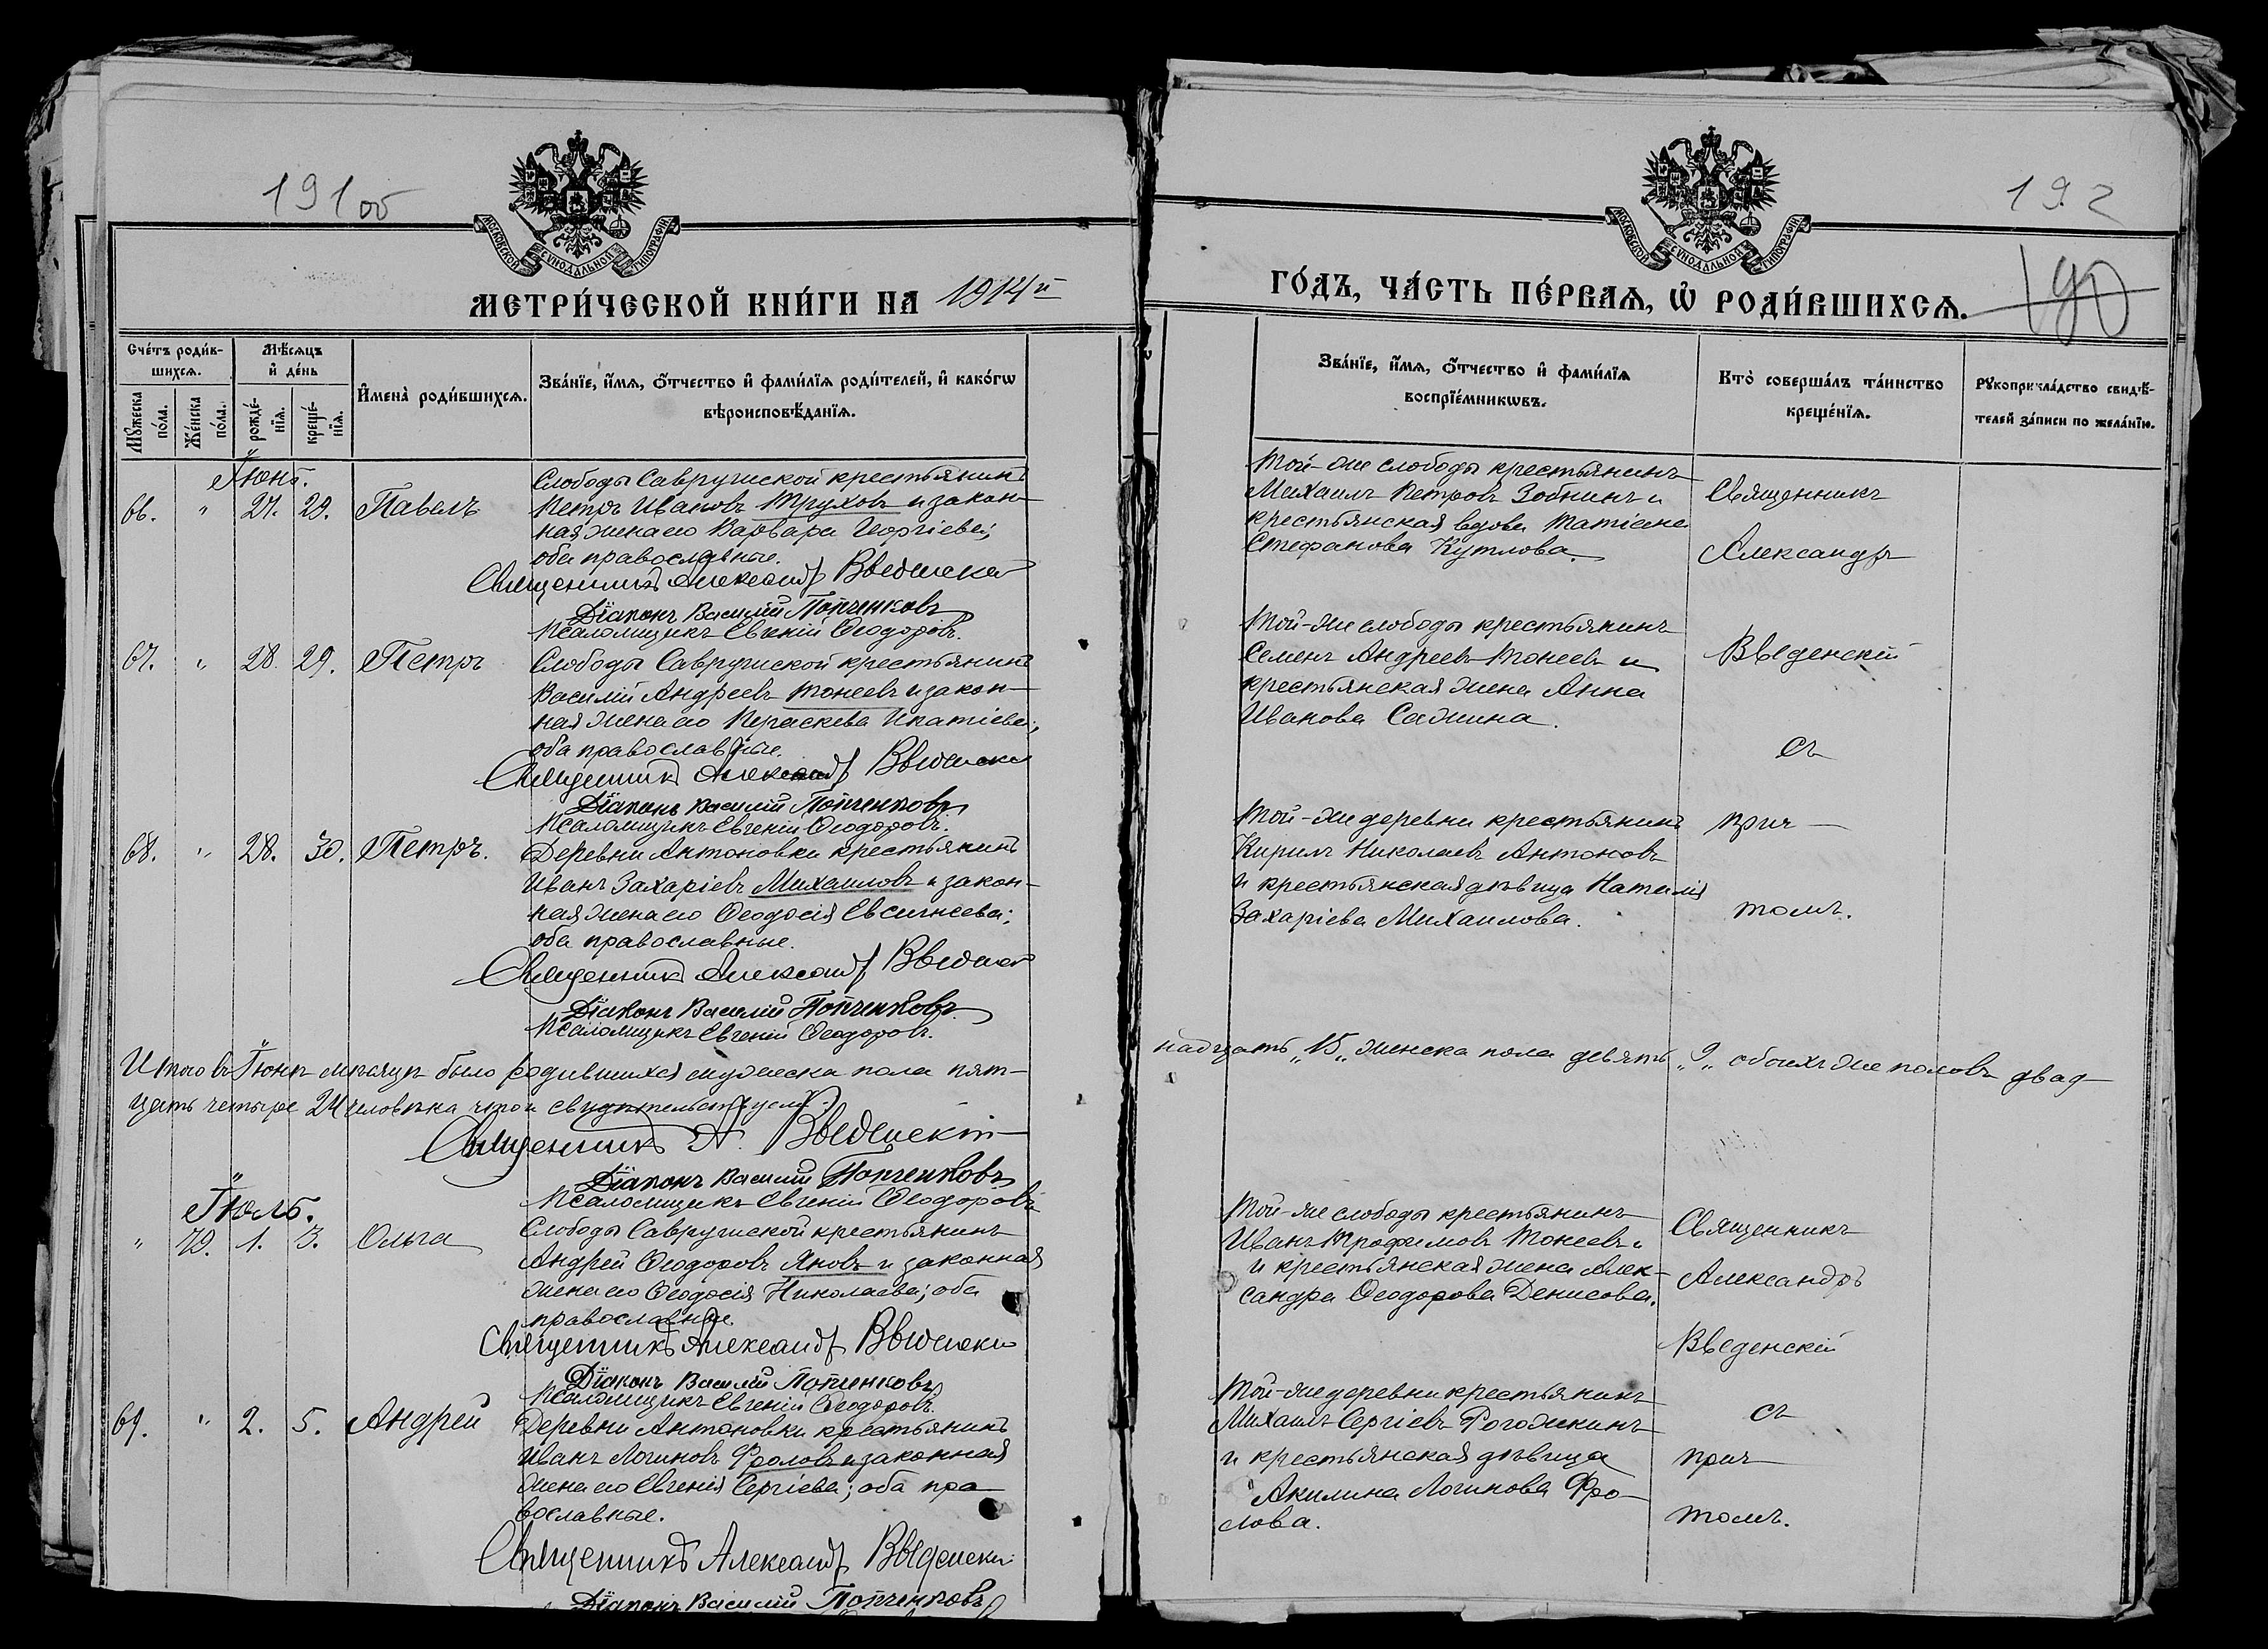 191об
МОСКОВСКОЙ СУНОДАЛЬНОЙ ТИПОГРАФІИ
МЕТРИ́ЧЕСКОЙ КНИ́ГИ НА 1914й
Сче́тъ роди́в-
шихся.
Мѣ́сяцъ
и҆ де́нь
Мꙋ́жеска
по́ла.
Же́нска
по́ла.
рожде́-
нїѧ.
креще́-
нїѧ.
И҆мена̀ роди́вшихсѧ.
Зва́нїе, и҆́мѧ, ѻ҆́тчество и҆ фами́лїѧ роди́телей, и҆ како́гѡ
вѣроисповѣ́данїѧ.
Іюнь.
66. " 27. 29. Павелъ
Слободы Саврушской крестьянинъ
Петръ Ивановъ Труховъ и закон-
ная жена его Варвара Георгіева;
оба православные.
Священникъ Александръ Введенскій
Діаконъ Василій Попченковъ
Псаломщикъ Евгеній Ѳеодоровъ.
67. " 28. 29. Петръ
Слободы Саврушской крестьянинъ
Василій Андреевъ Тонеевъ и закон-
ная жена его Параскева Ипатіева;
оба православные.
Священникъ Александръ Введенскій
Діаконъ Василій Попченковъ
Псаломщикъ Евгеній Ѳеодоровъ.
68. " 28. 30. Петръ.
Деревни Антоновки крестьянинъ
Иванъ Захаріевъ Михаиловъ и закон-
ная жена его Ѳеодосія Евсигнеева;
оба православные.
Священникъ Александръ Введенскій
Діаконъ Василій Попченковъ
Псаломщикъ Евгеній Ѳеодоровъ.
Итого въ Іюнѣ мѣсяцѣ было родившихся мужеска пола пят-
цать четыре 24 человѣка что и свидѣтельствуемъ:
Священникъ А. Введенскій
Діаконъ Василій Попченковъ
Псаломщикъ Евгеній Ѳеодоровъ
Іюль.
" 79. 1. 3. Ольга
Слободы Саврушской крестьянинъ
Андрей Ѳеодоровъ Яновъ и законная
жена его Ѳеодосія Николаева; оба
православные.
Священникъ Александръ Введенскій
Діаконъ Василій Попченковъ
Псаломщикъ Евгеній Ѳеодоровъ.
69. " 2. 5. Андрей
Деревни Антоновки крестьянинъ
Иванъ Логиновъ Фроловъ и законная
жена его Евгенія Сергіева; оба пра-
вославные.
Священникъ Александръ Введенскій
Діаконъ Василій Попченковъ
192
МОСКОВСКОЙ СУНОДАЛЬНОЙ ТИПОГРАФІИ
190
ГО́ДЪ, ЧА́СТЬ ПЕ́РВАѦ, Ѡ҆ РОДИ́ВШИХСѦ.
Зва́нїе, и҆́мѧ, ѻ҆́тчество и҆ фами́лїѧ
воспрїе́мникѡвъ.
Кто̀ соверша́лъ та́инство
креще́нїѧ.
Рꙋкоприкла́дство свидѣ́-
телей за́писи по жела́нїю.
Той-же слободы крестьянинъ
Михаилъ Петровъ Зобнинъ и
крестьянская вдова Татіана
Стефанова Кутлова.
Священникъ
Александръ
Той-же слободы крестьянинъ
Семенъ Андреевъ Тонеевъ и
крестьянская жена Анна
Иванова Сажина.
Введенскій
съ
Той-же деревни крестьянинъ
Кирилъ Николаевъ Антоновъ
и крестьянская дѣвица Наталія
Захаріева Михаилова.
прич-
томъ.
надцать „15„ женска пола девять „9„ обоихъ же половъ двад-
Той-же слободы крестьянинъ
Иванъ Трофимовъ Тонеевъ и
и крестьянская жена Алек-
сандра Ѳеодорова Денисова.
Священникъ
Александръ
Введенскій
Той-же деревни крестьянинъ
Михаилъ Сергіевъ Рогожкинъ
и крестьянская дѣвица
Акилина Логинова Фро-
лова.
съ
прич-
томъ.